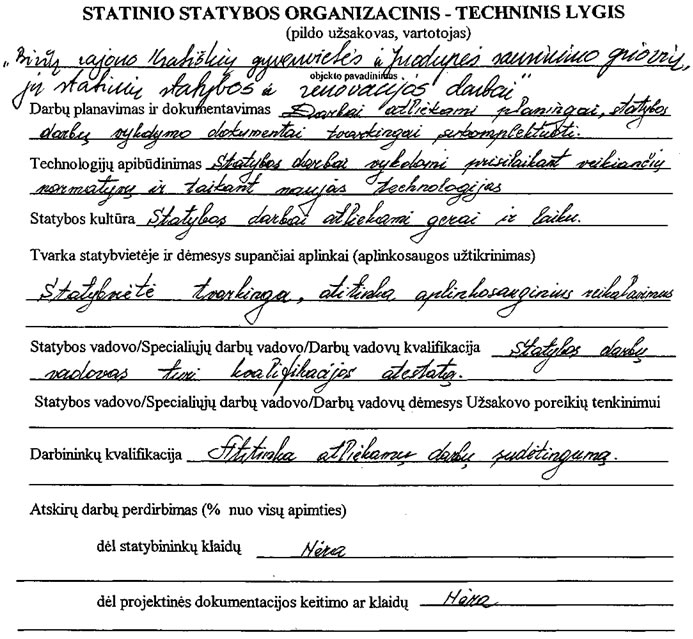 STATINIO STATYBOS ORGANIZACINIS - TECHNINIS LYGIS
(pildo užsakovas, vartotojas)
„Biržų rajono gyvenvietės ir griovių,
jų statinių statybos ir renovacijos darbai“
objekto pavadinimas
Darbų planavimas ir dokumentavimas Darbai atliekami planingai, statybos
darbų vykdymo dokumentai tvarkingai sukomplektuoti.
Technologijų apibūdinimas Statybos darbai vykdomi prisilaikant veikiančių
normatyvų ir taikant naujas technologijas
Statybos kultūra Statybos darbai atliekami gerai ir laiku.
Tvarka statybvietėje ir dėmesys supančiai aplinkai (aplinkosaugos užtikrinimas)
Statybvietė tvarkinga, atitinka aplinkosauginius reikalavimus
Statybos vadovo/Specialiųjų darbų vadovo/Darbų vadovų kvalifikacija Statybos darbų
vadovas turi kvalifikacijos atestatą.
Statybos vadovo/Specialiųjų darbų vadovo/Darbų vadovų dėmesys Užsakovo poreikių tenkinimui
Darbininkų kvalifikacija Atitinka atliekamų darbų sudėtingumą.
Atskirų darbų perdirbimas (% nuo visų apimties)
dėl statybininkų klaidų Nėra
dėl projektinės dokumentacijos keitimo ar klaidų Nėra